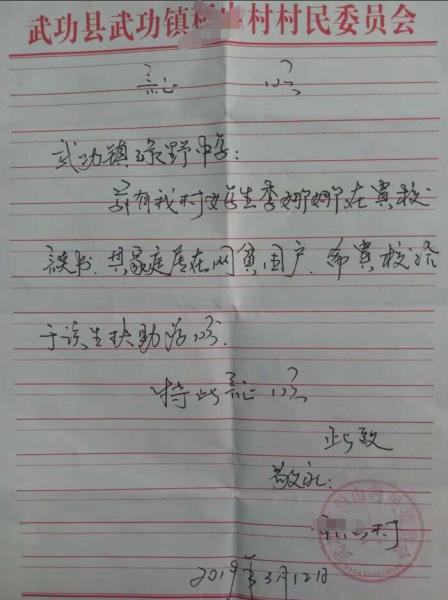 武功县武功镇 村村民委员会
证 明
武功镇绿野中学：
兹有我村女学生李娜娜在贵校
读书，其家庭居在册贫困户，希贵校给
于该生扶助为盼。
特此证明
此致
敬礼：
村
2019年3月12日